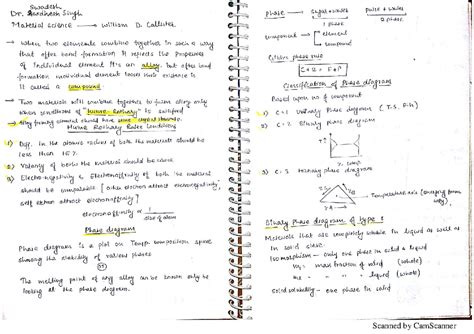 Swadesh
Dr. Sandheesh Singh
Material science → William D. Callister
→ when two elements combine together in such a way
that after bond formation it reflects the properties
of individual element it is an alloy, but after bond
formation individual element loses its existence is
it called a compound
→ Two materials will combine together to form alloy only
when conditions of "Hume Rothary" is satisfied
→ Alloy forming element should have same crystal structure.
Hume Rothary Rules Conditions
1) Diff. in the atomic radius of both the material should be
less than 15%.
2) Valency of both the material should be same
3) Electronegativity & Electronaffinity of both the material
should be compatible [other electron attract electronegativity,
self electron attract electronaffinity]
electronaffinity ∝ 1
size of atom
Phase diagram
Phase diagram is a plot on Temp composition space
showing the stability of various phases
The melting point of any alloy can be known only by
looking at the phase diagram.
phase
component → Element
compound
Gibbs phase rule
C + 2 = F + P
Classification of Phase diagram
Based upon no of component
1) C = 1 Unitary phase diagram
2) C = 2 Binary phase diagram
% comp.
3) C = 3 phase diagram
Binary Phase diagram of type 1
Materials that are completely soluble in liquid as well as
in solid state.
Isomorphism - only one phase in solid & liquid
solid solubility - one phase in solid
Scanned by CamScanner